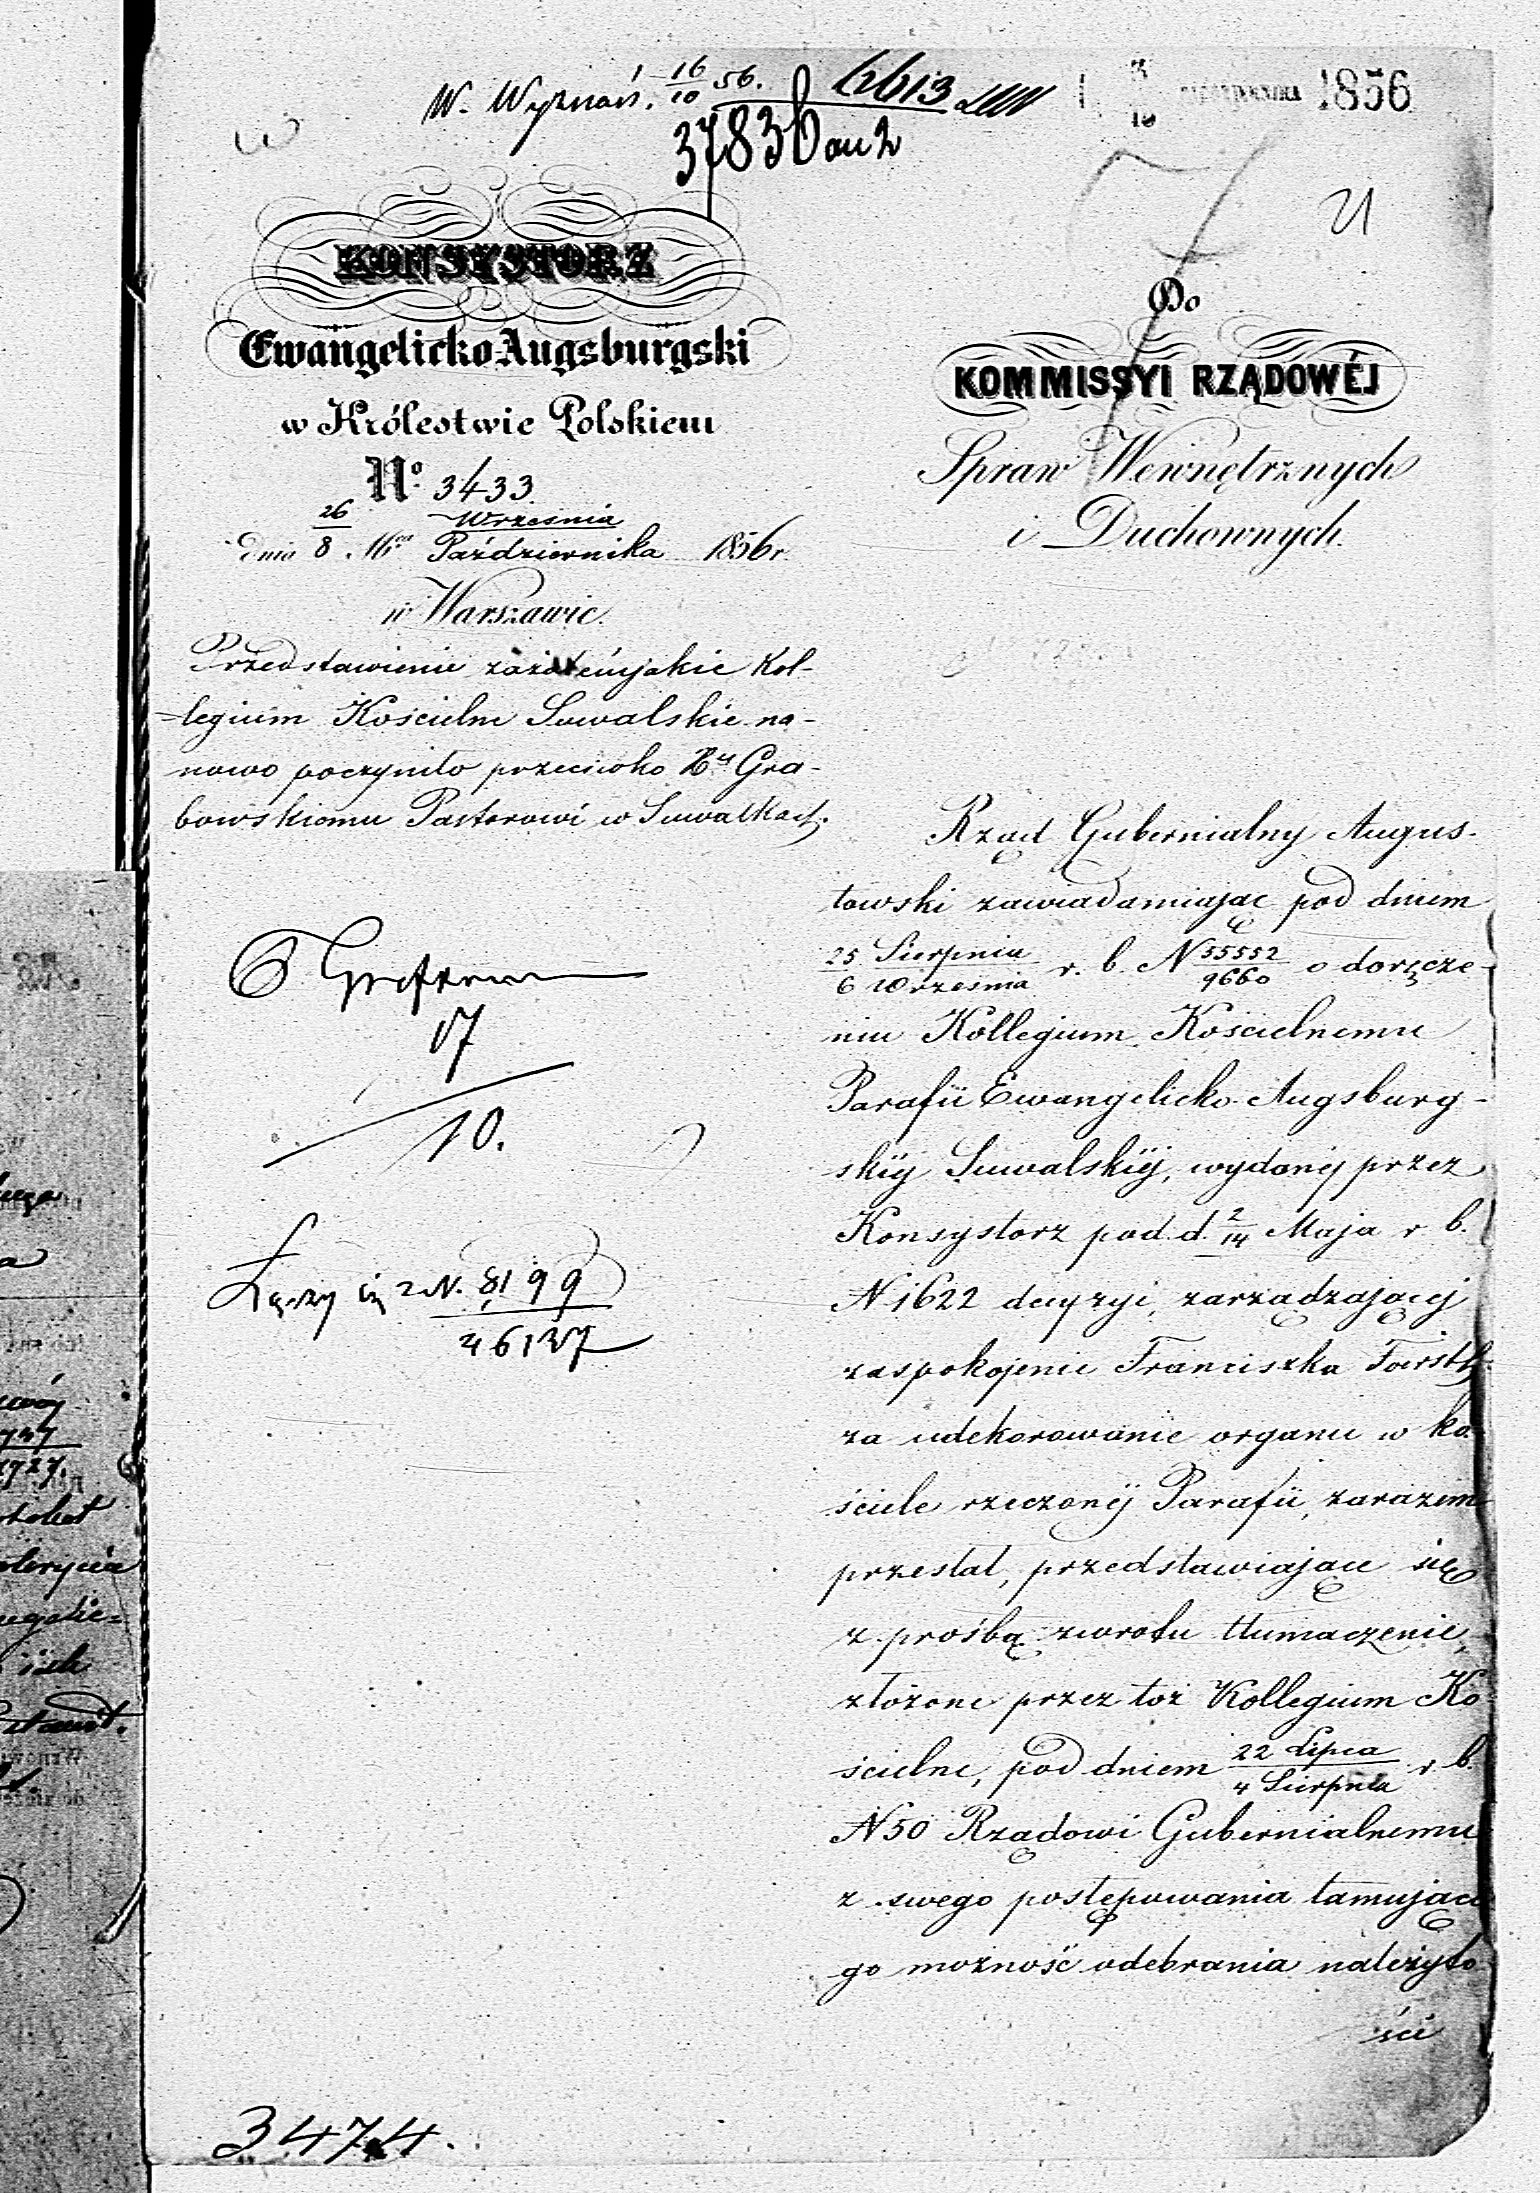 W. Wyznań. 16/10 56.
6613
37836
1856
21
KONSYSTORZ
Ewangelicko-Augsburgski
w Królestwie Polskiem
No. 3433
dnia 26/8 Września/Października 1856 r.
w Warszawie.
Przedstawienie zażaleń, jakie Kol-
legium Kościelne Suwalskie na-
nowo poczyniło przeciwko Xu Gra-
bowskiemu Pastorowi w Suwałkach.
17
10.
Łączy się z N. 8199
46137
3474.
Do
KOMMISSYI RZĄDOWÉJ
Spraw Wewnętrznych
i Duchownych.
Rząd Gubernialny Augus-
towski zawiadamiając pod dniem
25 Sierpnia/6 Września r. b. N 55552/9660 o doręcze-
niu Kollegium Kościelnemu
Parafii Ewangelicko-Augsburg-
skiéj Suwalskiéj, wydanéj przez
Konsystorz pod d. 2/14 Maja r b.
N 1622 decyzyi, zarządzającéj
zaspokojenie Franciszka
za udekorowanie organu w ko-
ściele rzeczonéj Parafii, zarazem
przesłał, przedstawiające się
z prośbą zwrotu tłumaczenie,
złożone przez toż Kollegium Ko-
ścielne, pod dniem 22 Lipca/4 Sierpnia r b.
N 50 Rządowi Gubernialnemu
z swego postępowania tamujące-
go możność odebrania należyto-
ści